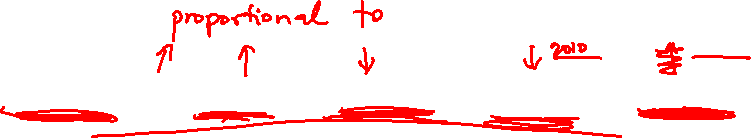 proportional to
2010